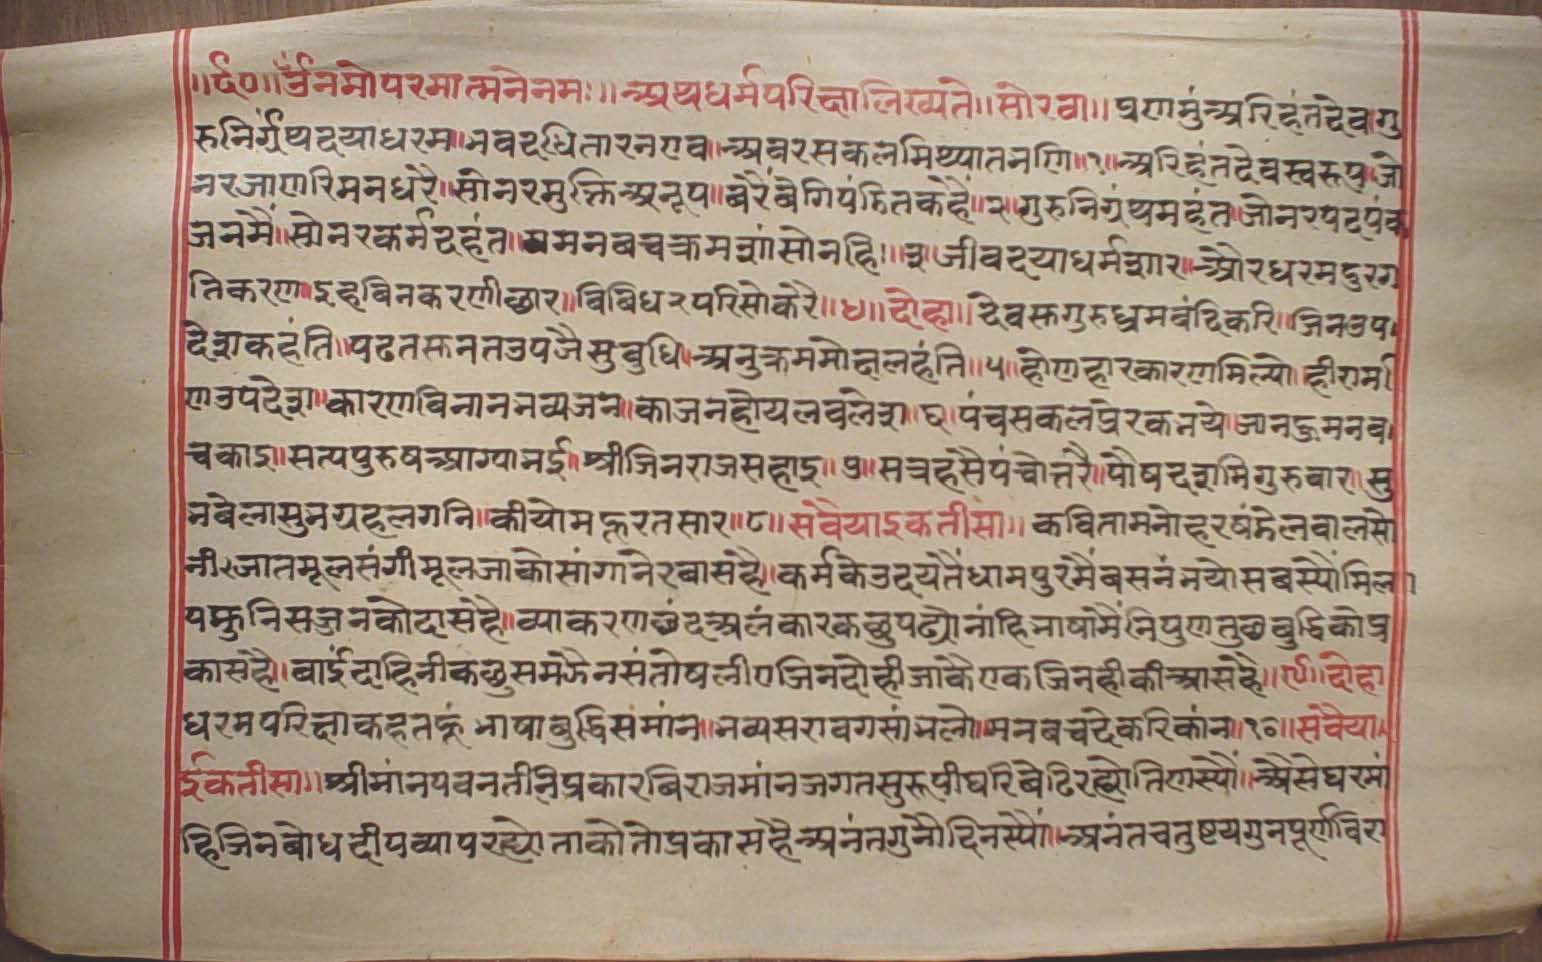 ॥र्द०॥ र्उँनमोपरमात्मनेनमः॥ अथधर्मपरिक्षालिख्यते॥ सोरठा॥ प्रणमुंअरिहंतदेव।गु
रुनिर्ग्रंथदयाधरम॥भवदधितारनएव।अवरसकलमिथ्यातभणि॥१॥अरिहंतदेवस्वरूप।जो
नरजाणरिमनधरै॥सोनरमुक्तिअनूप।बरैबेगिपंडितकहै॥२॥गुरुनिग्रंथमहंत।जोनरपदपंक
जनमैं॥सोनरकर्मदहंत।मनबचक्रमशंसोनहि॥३॥जीवदयाधर्मशार।औरधरमदुरग
तिकरण॥इहबिनकरणीछार।बिबिध२परिसोकरै॥४॥दोहा॥देवसरुगुरुध्रमबंदिकरि।जिनउप
देशकहंति॥पढतसुनतउपजैसुबुधि।अनुक्रममोक्षलहंति॥५॥होणहारकारणमिल्यो।हीरामी
णउपदेश॥कारणविनानभव्यजन।काजनहोयलवलेश॥६॥पंचसकलप्रेरकभये।जानहुमनब
चकाइ॥सत्यपुरुषआग्यानई।श्रीजिनराजसहाइ॥७॥सत्रहसैपंचोत्तरै।पौषदशमिगुरुबार॥सु
भबेलासुभग्रहलगनि।कीयोमहूरतसार॥८॥सवैयाइकतीसा॥कवितामनोहरषंडेलवालसो
नीरजातमूलसंगीमूलजाकोसांगानेरबासहै॥कर्मकेउदयतैंधामपुरमैंबसनंभयोसबस्यौंमिला
पफुनिसजनकोदासहै॥व्याकरणछंदअलंकारकछुपढ्योनांहिभाषामैंनिपुणतुछबुद्धिकोप्र
कासहै॥बाईंदाहिनीकछुसमझैनसंतोषलीएजिनदोहीजाकैएकजिनहीकीआसहै॥९॥दोहा
धरमपरिक्षाकहतहूं भाषाबुद्धिसमांन॥भव्यसरावगसांभलो।मनबचदेकरिकांन॥१०॥सवैया
ईकतीसा॥श्रीमांनपवनतीनिप्रकारबिराजमांनजगतसुरूपीघरिबेढिरह्योतिणस्यौं॥अैसेघरमां
हिजिनबोधदीपव्यापरह्योताकोतोप्रकासहैअनंतगुनौदिनस्यौं॥अनंतचतुष्टयगुनपूर्णविरा